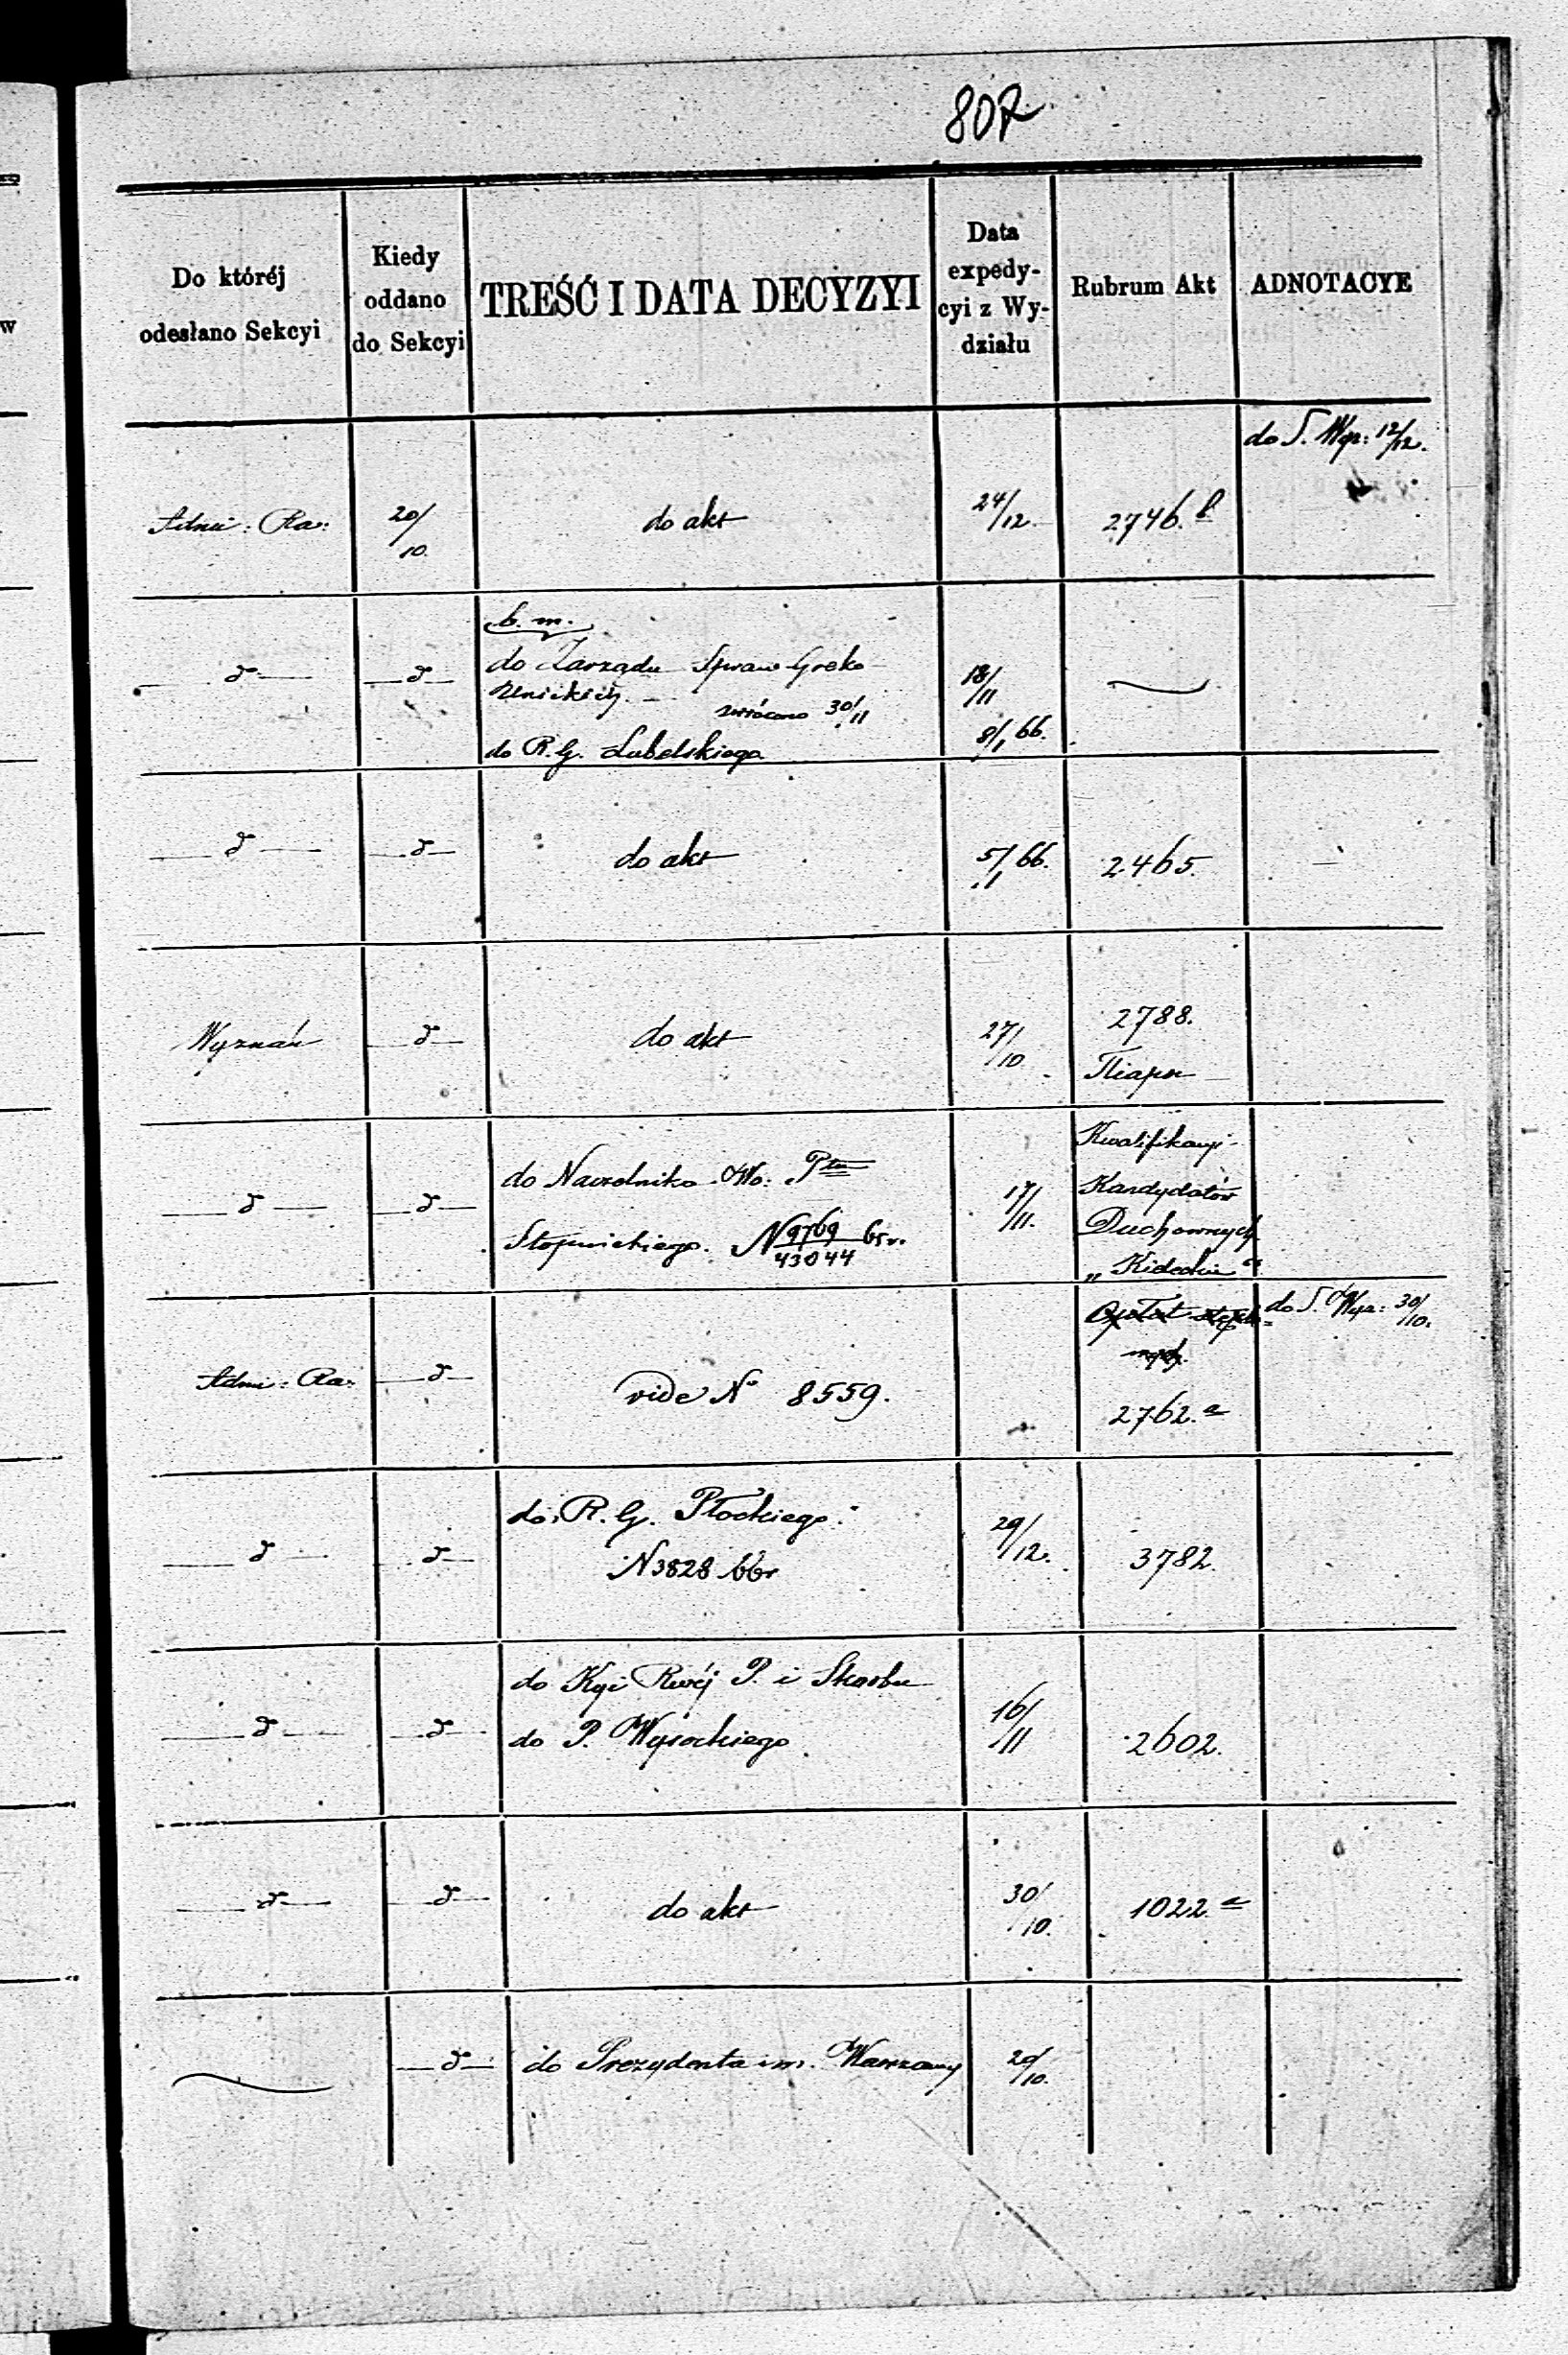 807
Do któréj
odesłano Sekcyi
Kiedy
oddano
do Sekcyi
TREŚĆ I DATA DECYZYI
Data
expedy-
cyi z Wy-
działu
Rubrum Akt
ADNOTACYE
do S. Wyz: 12/12.
Admi: Ra:
20/10.
do akt
24/12.
2746. b
b. m.
d
d
do Zarządu Spraw Greko
Unickich. -
zwrócono 30/11
18/11
do R. G. Lubelskiego.
8/1 66.
d
d
do akt
5/1 66.
2465.
Wyznań
d
do akt
27/10
2788.
d
d
do Naczelnika Wo: Ptu
Stopnickiego. N 9769/43044 65r.
17/11.
Kwalifikacyi
Kandydatów
Duchownych
„ Kieleckie "
do S. Wyz: 30/10.
Admi: Ra:
d
vide No 8559.
2762. a
d
d
do R. G. Płockiego.
N 3828 66r
29/12.
3782.
d
d
do Kyi Rwéj P. i Skarbu
do P. Wysockiego
16/11
2602.
d
d
do akt
30/10.
1022. a
d
do Prezydenta m. Warszawy
20/10.